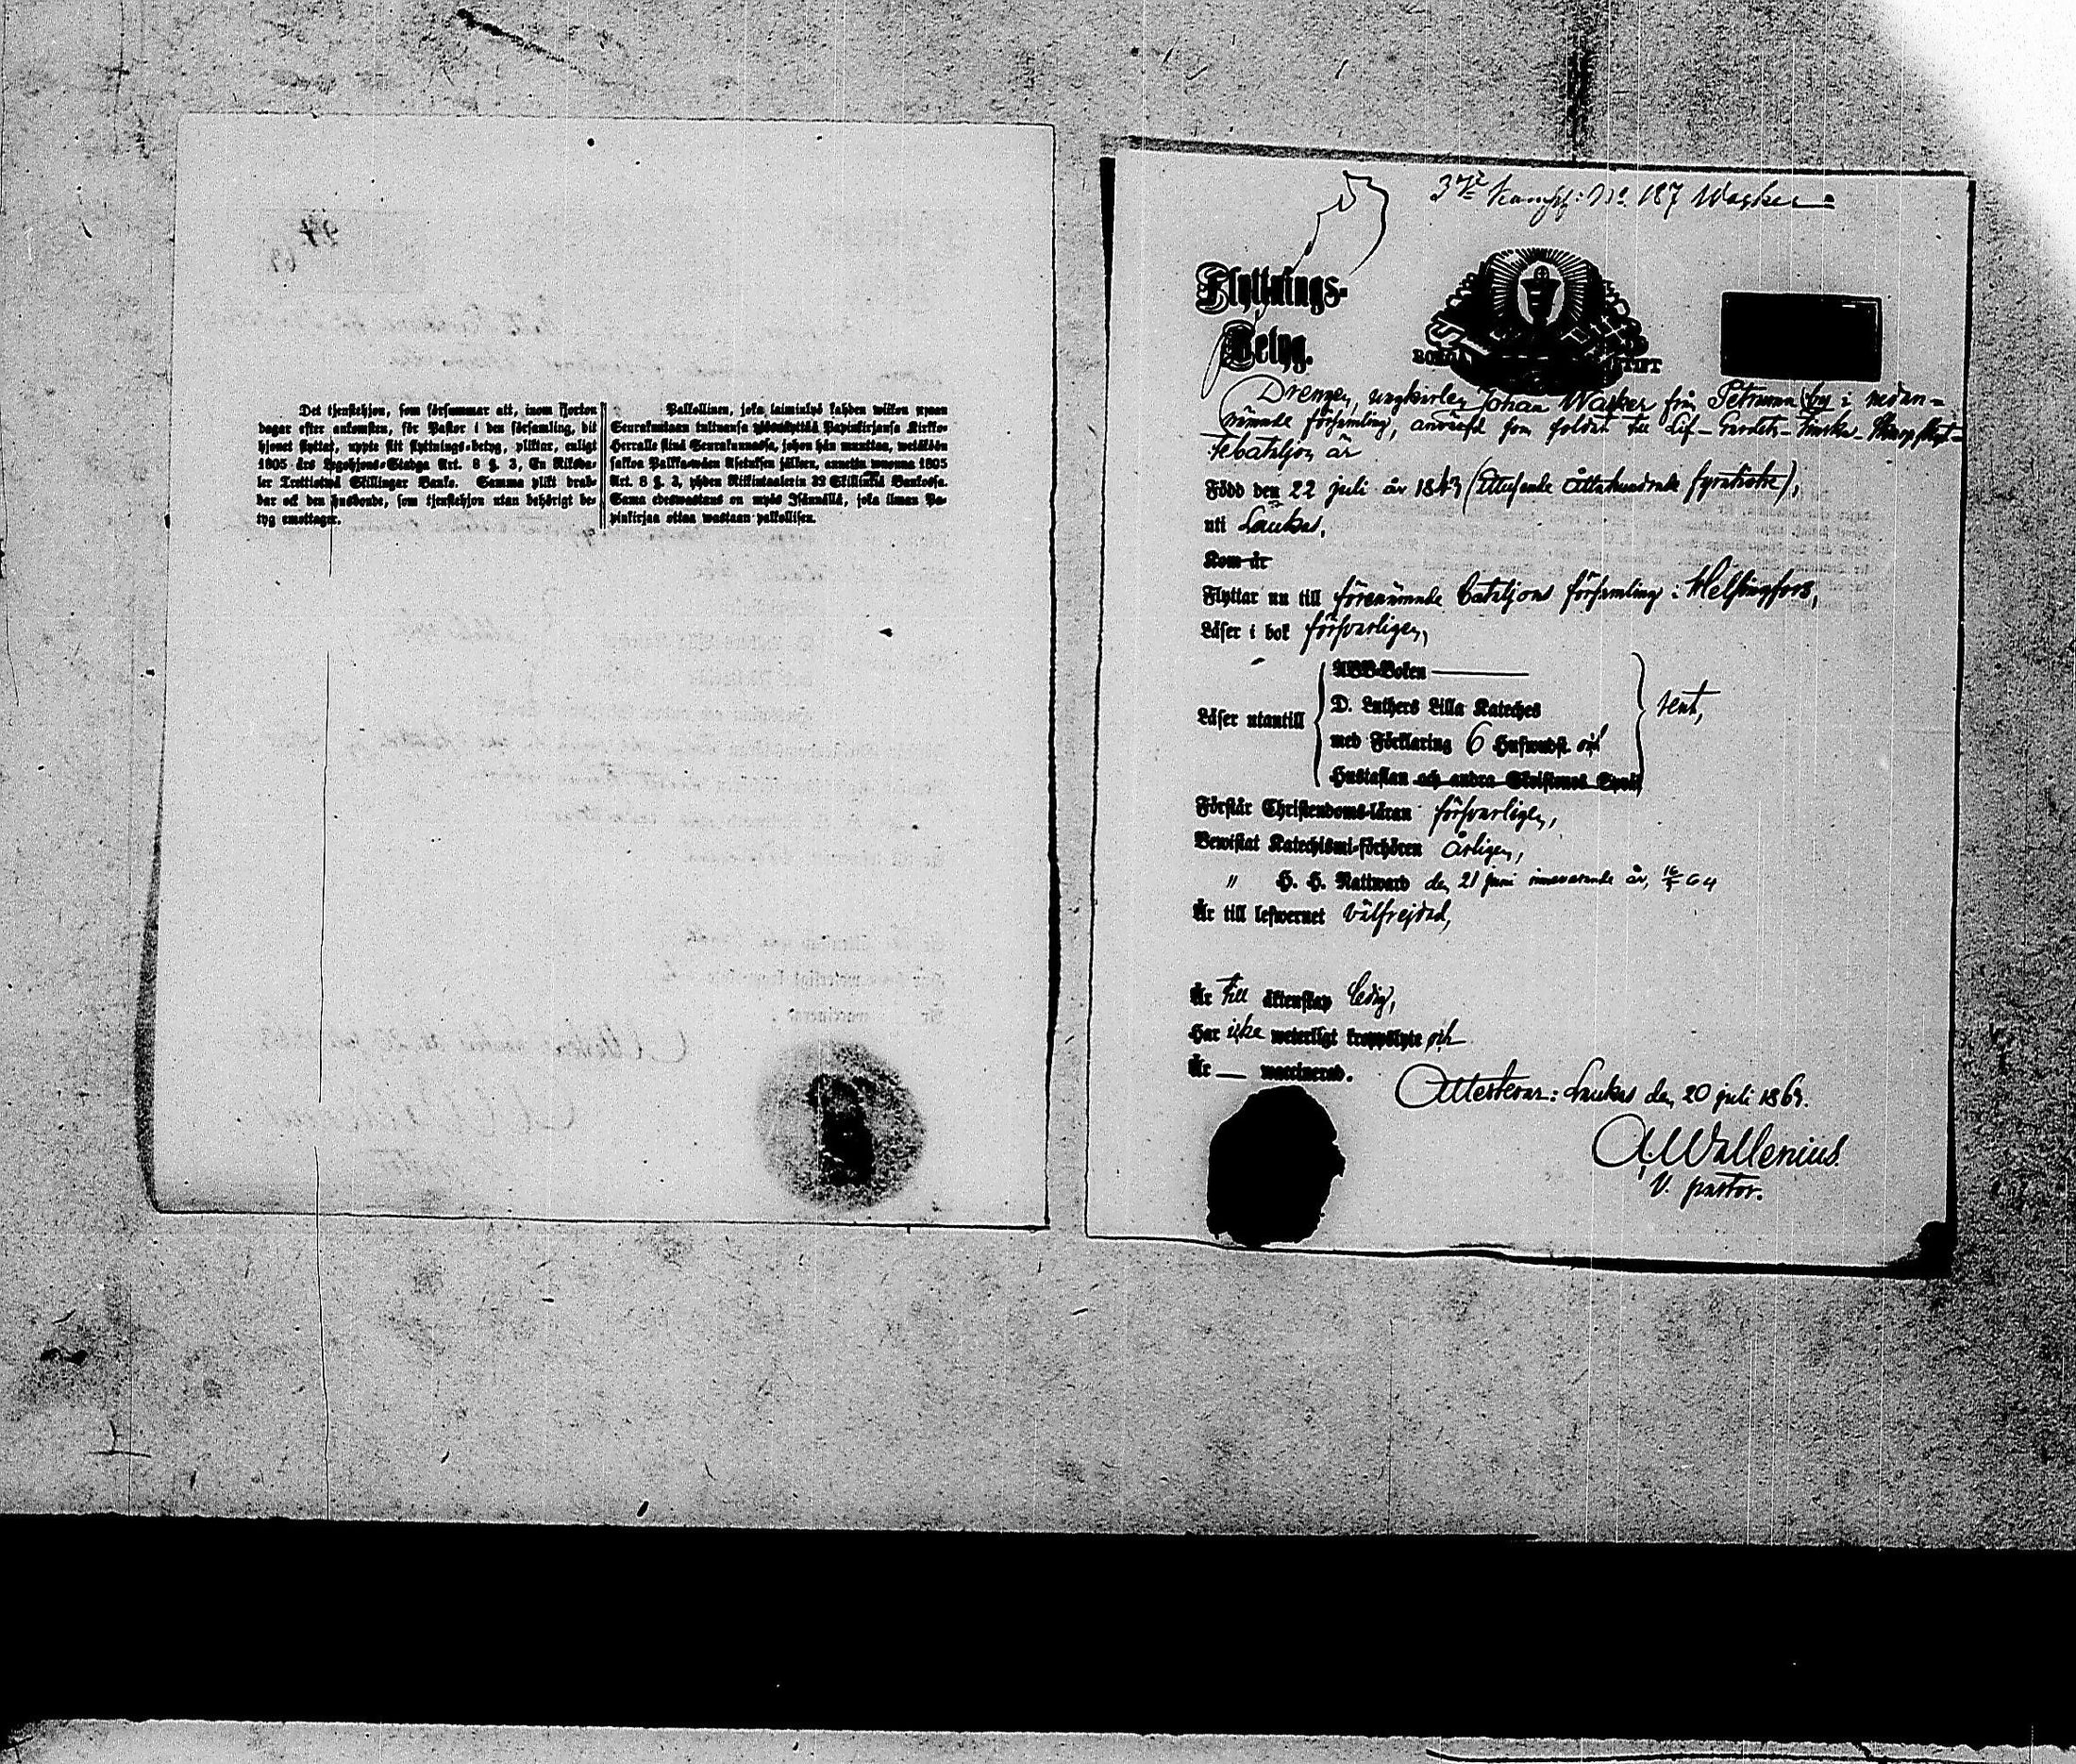 Det tjenstehjon, som försummar att, inom fjorton
dagar efter ankomsten, för Pastor i den församling, dit
hjonet flyttat, uppte sitt flyttnings-betyg, pliktar, enligt
1805 års Legohjons-Stadga Art. 8 §. 3, En Riksda-
ler Trettiotwå Skillingar Banko. Samma plikt drab-
bar ock den husbonde, som tjenstehjon utan behörigt be-
tyg emottager.
Palkollinen, joka laiminlyö kahden wiikon
Seurakuntaan tultuansa Papinkirjansa Kirkko-
herralle siinä Seurakunnassa, johon hän muuttaa, wetäköön
sakkoa Palkka-wäen Asetuksen jälkeen, annettu wuonna 1805
Art. 8 §. 3, yhden Riikintaalerin 32 Skillinkiä Bankossa.
Sama edeswastaus on myös Isännällä, joka ilman Pa-
pinkirjaa ottaa wastaan palkollisen.
3dje Komp: No 187 Wasker
Flyttnings-
Betyg.
STIFT
Drengen, ungkarlen Johan Wasker från by i nedan-
nämnde församling, som soldat till Lif-Gardets-Finska-Skarpskyt-
tebataljon är
Född den 22 juli år 1843 (Ettusende Åttahundrade fyratiotre),
uti Laukas,
Kom år
Flyttar nu till förenämnde bataljons församling i Helsingfors,
Läser i bok försvarligen,
Läser utantill
ABC-Boken
D. Luthers Lilla Kateches
med Förklaring 6 Hufwudst. och
Hustaflan och andra Christines Språk
rent,
Förstår Christendoms-läran försvarligen,
Bewistat Katechismi-förhören årligen,
" H. H. Nattward den 21 juni innevarande år, 16/5 64
Är till lefwernet välfrejdad,
Är till äktenskap ledig,
Har icke weterligt kroppslyte och
Är — waccinerad.
Attesterar: Laukas den 20 juli 1863.
A. Wallenius.
V. pastor.